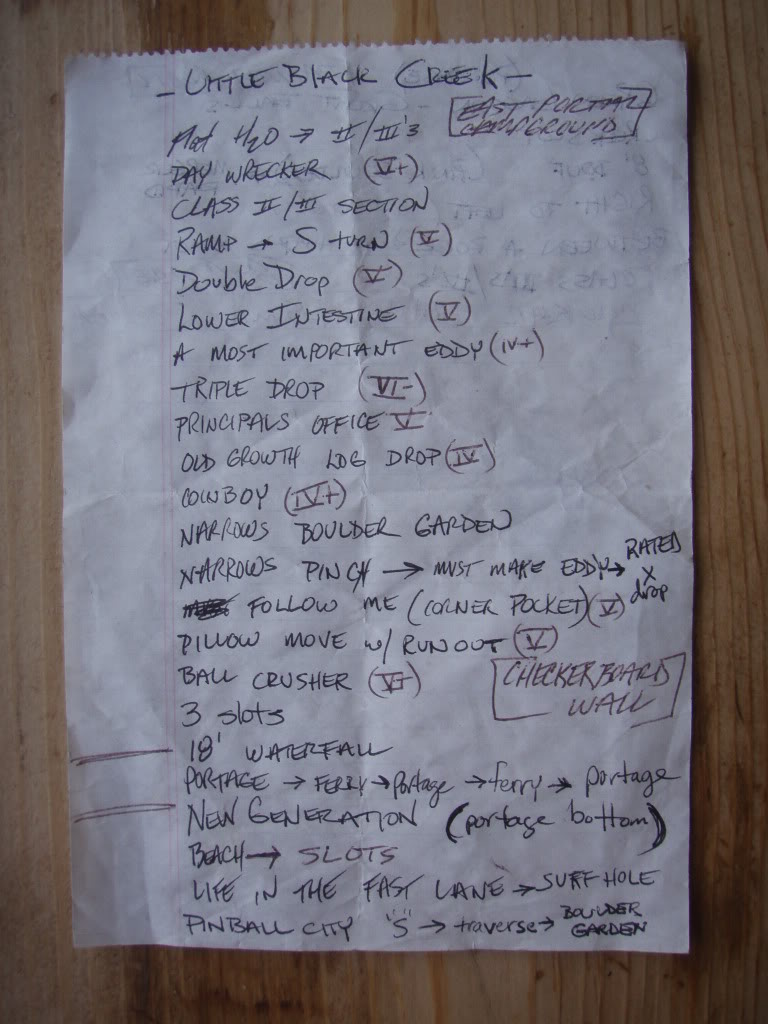 - LITTLE BLACK CREEK -
EAST PORTAL
CAMPGROUND
flat H2O → II/III's
DAY WRECKER (V+)
CLASS II/III SECTION
RAMP → S TURN (V)
Double Drop (V)
LOWER INTESTINE (V)
A MOST IMPORTANT EDDY (IV+)
TRIPLE DROP (VI-)
PRINCIPALS OFFICE V
OLD GROWTH LOG DROP (IV)
COWBOY (IV+)
NARROWS BOULDER GARDEN
NARROWS PINCH → MUST MAKE EDDY → RATED
X
drop
FOLLOW ME (CORNER POCKET) (V)
PILLOW MOVE w/ RUNOUT (V)
BALL CRUSHER (V+)
CHECKERBOARD
WALL
3 slots
18' WATERFALL
PORTAGE → FERRY → Portage → ferry → portage
NEW GENERATION (portage bottom)
BEACH → SLOTS
LIFE IN THE FAST LANE → SURF HOLE
PINBALL CITY "S" → traverse → BOULDER
GARDEN